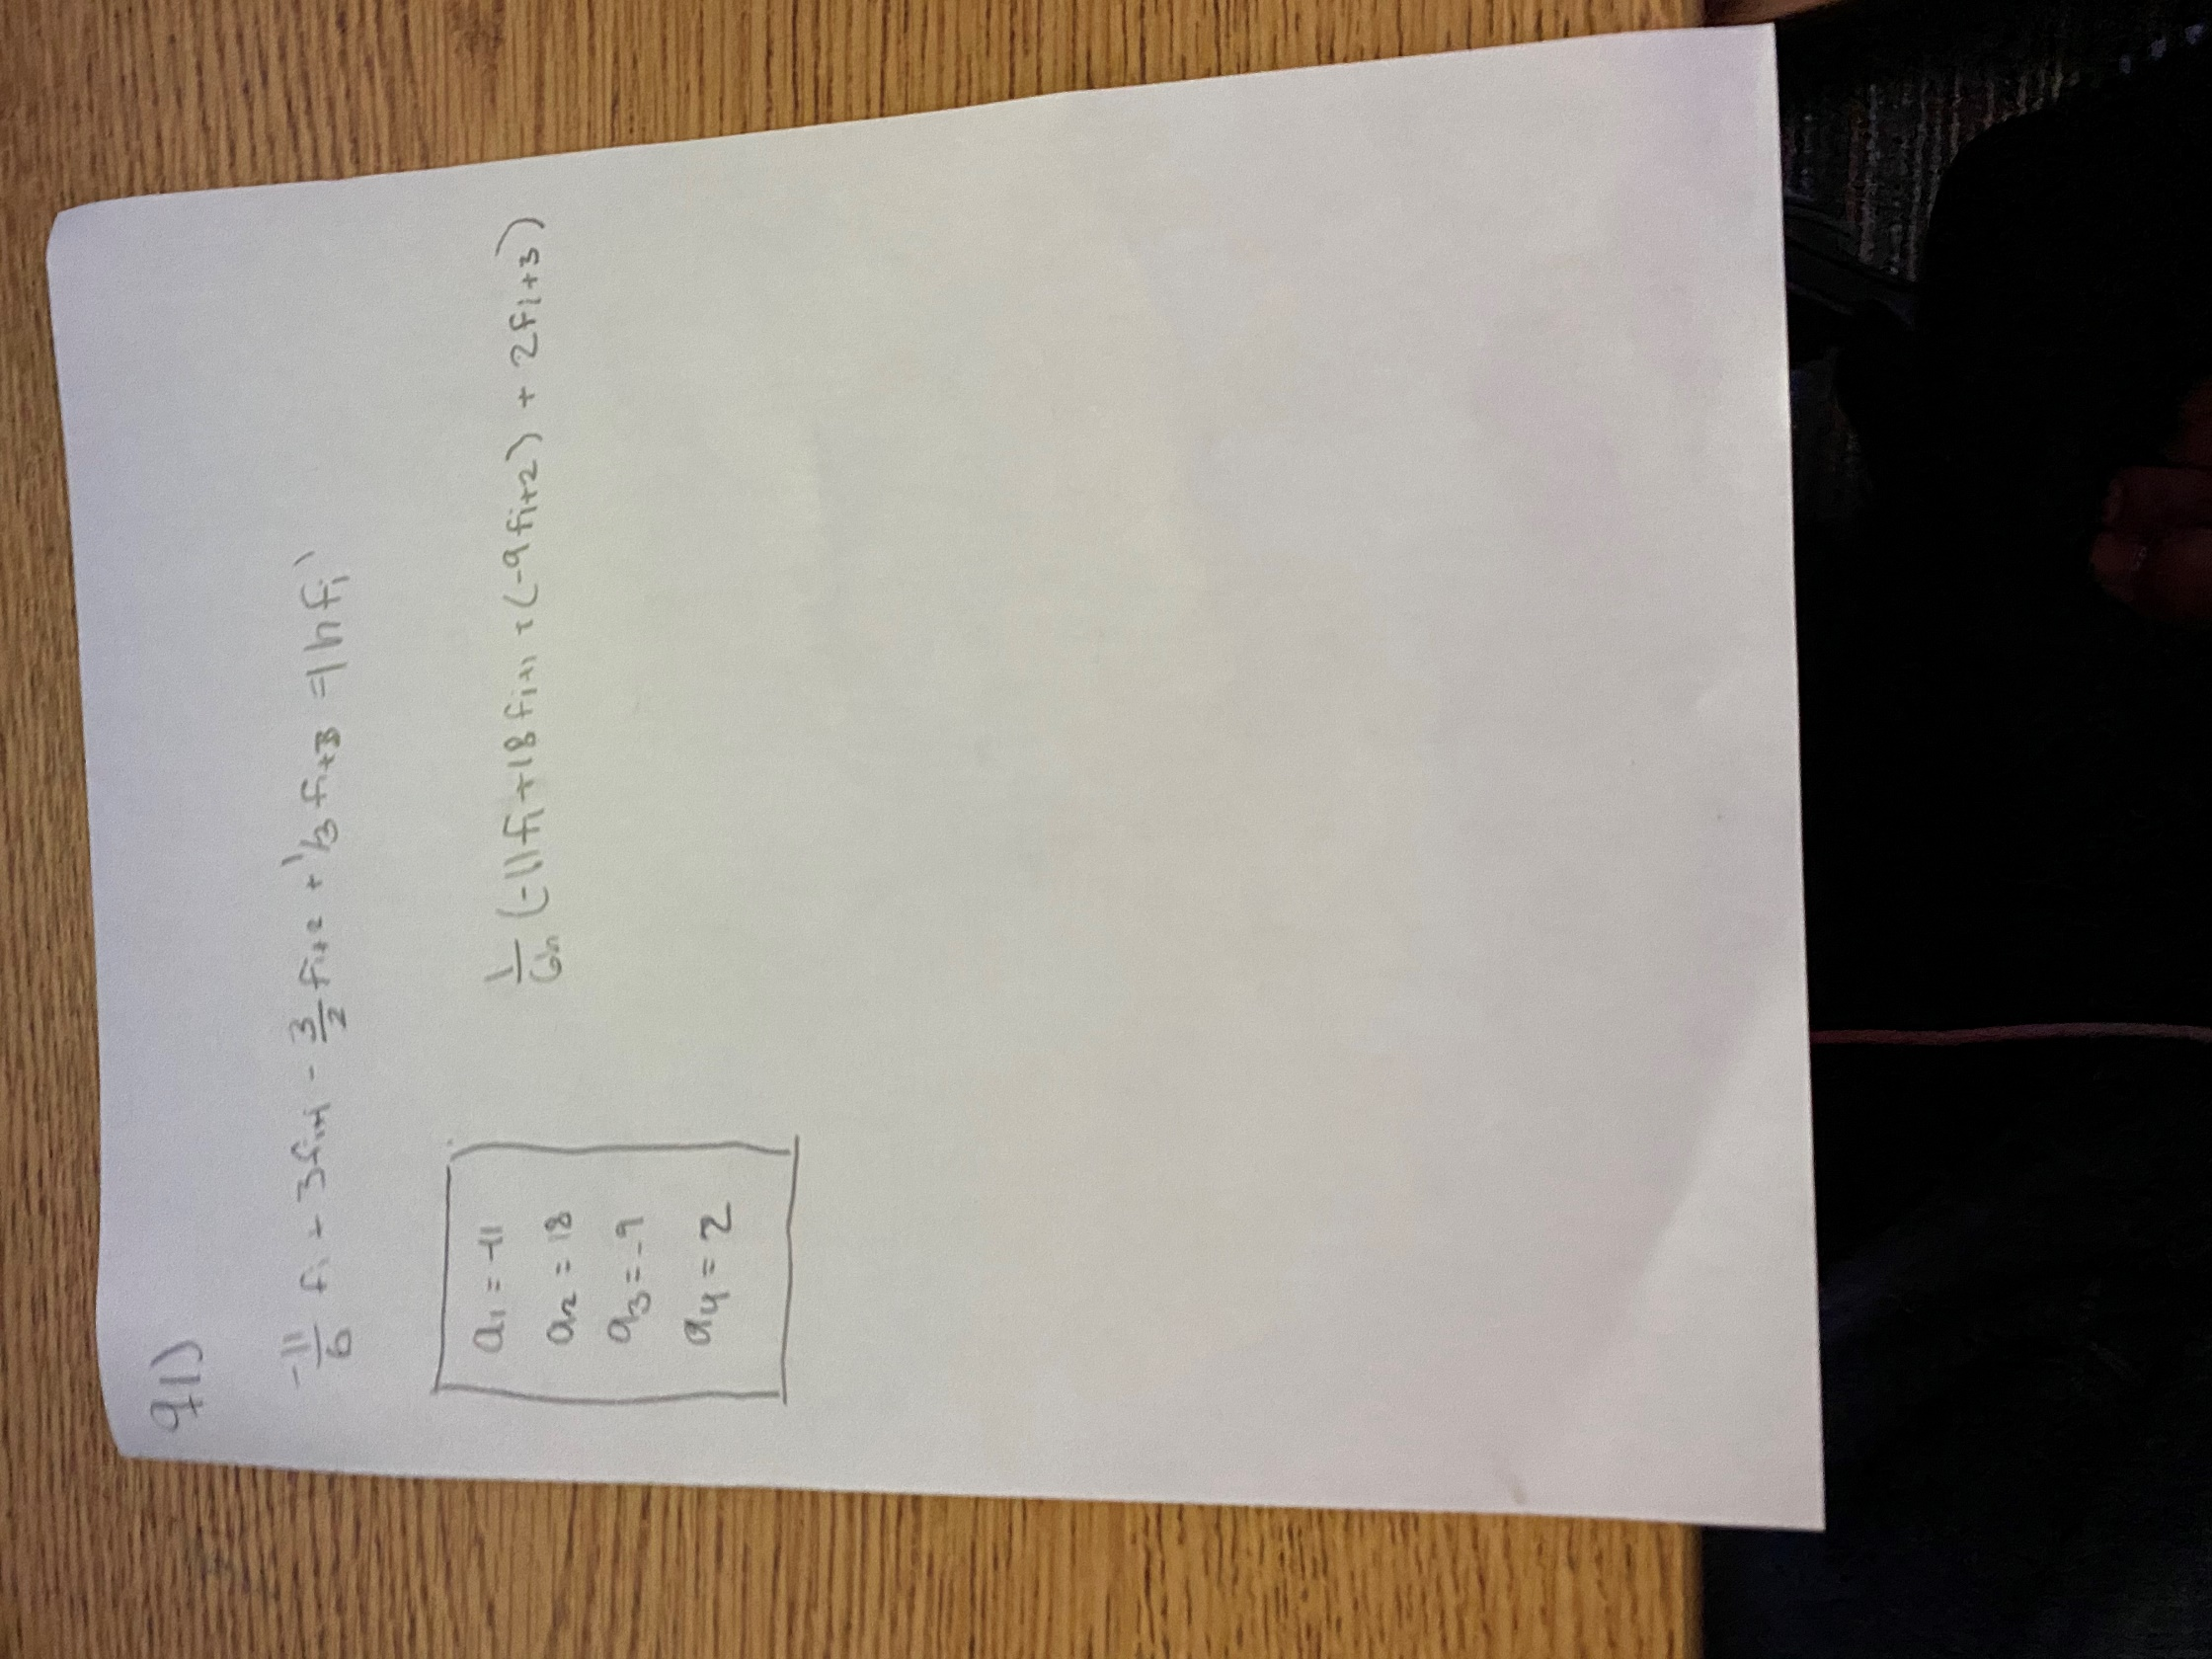 q1)
-11/6 fi + 3fi+1 - 3/2 fi+2 + 1/3 fi+3 = 1hfi'
a1 = -11
a2 = 18
a3 = -9
a4 = 2
1/6h (-11fi + 18fi+1 + (-9fi+2) + 2fi+3)